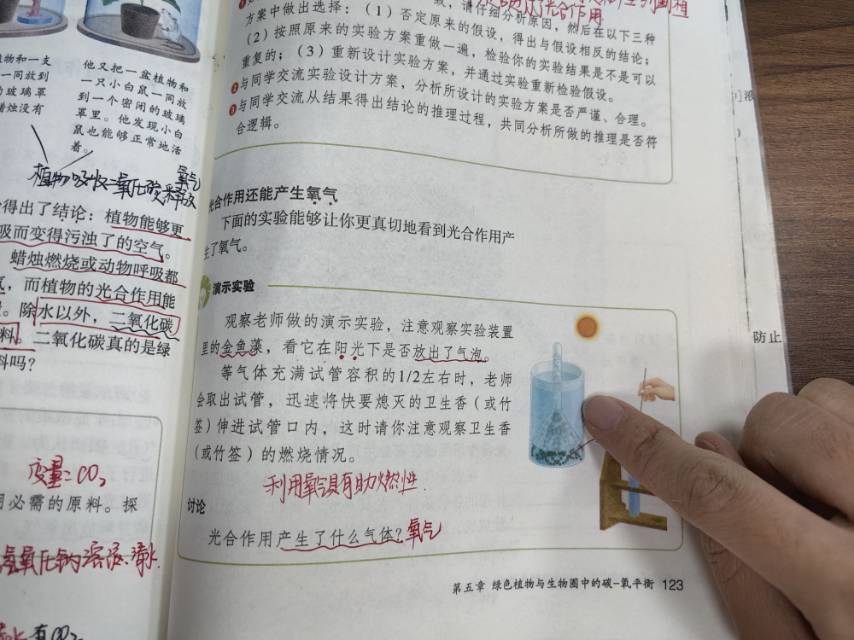 植物和一支
一同放到
的玻璃罩
蜡烛没有
他又把一盆植物和
一只小白鼠一同放
到一个密闭的玻璃
罩里。他发现小白
鼠也能够正常地活
着。
氧气
植物吸收二氧化碳释放
得出了结论：植物能够更
吸而变得污浊了的空气。
蜡烛燃烧或动物呼吸都
气，而植物的光合作用能
。除水以外，二氧化碳
料。二氧化碳真的是绿
料吗？
变量=CO₂
用必需的原料。探
氢氧化钠溶液、清水
有CO₂
光合作用
，请仔细分析原因，然后在以下三种
方案中做出选择：（1）否定原来的假设，得出与假设相反的结论；
（2）按照原来的实验方案重做一遍，检验你的实验结果是不是可以
重复的；（3）重新设计实验方案，并通过实验重新检验假设。
❷与同学交流实验设计方案，分析所设计的实验方案是否严谨、合理。
❸与同学交流从结果得出结论的推理过程，共同分析所做的推理是否符
合逻辑。
光合作用还能产生氧气
下面的实验能够让你更真切地看到光合作用产
生了氧气。
演示实验
观察老师做的演示实验，注意观察实验装置
里的金鱼藻，看它在阳光下是否放出了气泡。
等气体充满试管容积的1/2左右时，老师
会取出试管，迅速将快要熄灭的卫生香（或竹
签）伸进试管口内，这时请你注意观察卫生香
（或竹签）的燃烧情况。
利用氧气具有助燃性.
讨论
光合作用产生了什么气体？氧气
第五章 绿色植物与生物圈中的碳-氧平衡 123
防止